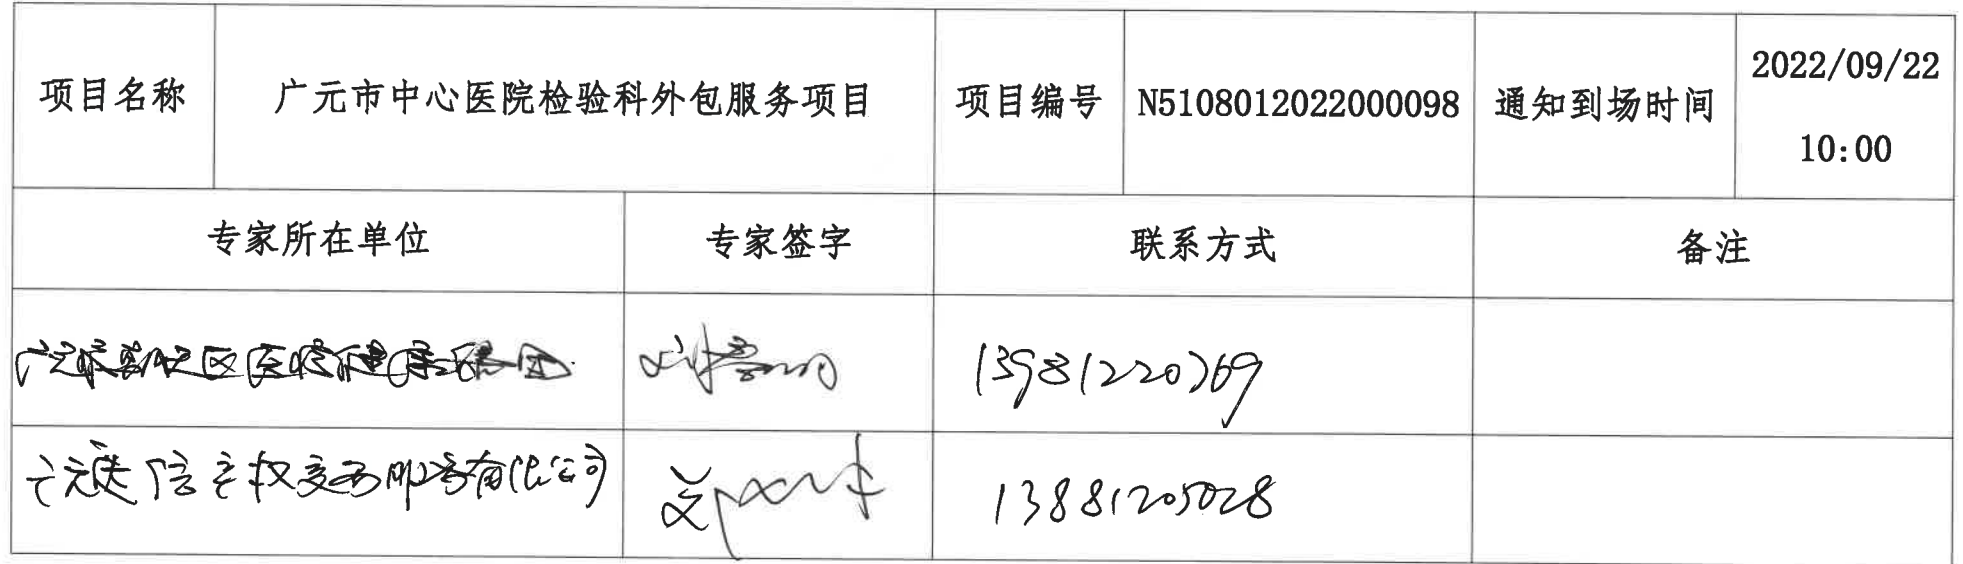 项目名称 广元市中心医院检验科外包服务项目 项目编号 N5108012022000098 通知到场时间 2022/09/22
10:00
专家所在单位 专家签字 联系方式 备注
13981220769
信产权交易服务有限公司 13881205028